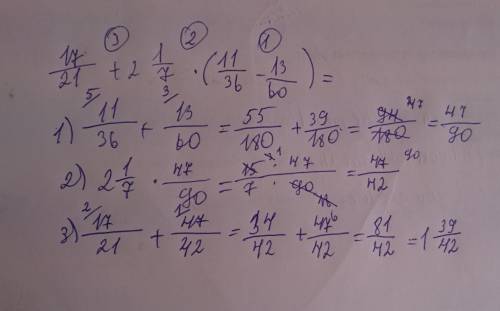 ③ ② ①
17/21 + 2 1/7 · (11/36 - 13/60) =
1) 11/36 ⁵⁄ + 13/60 ³⁄ = 55/180 + 39/180 = 94/180 47 = 47/90
2) 2 1/7 · 47/90 = 15 · 47/7 · 90 = 47/42
3) 17/21 ²⁄ + 47/42 = 34/42 + 47/42 = 81/42 = 1 39/42